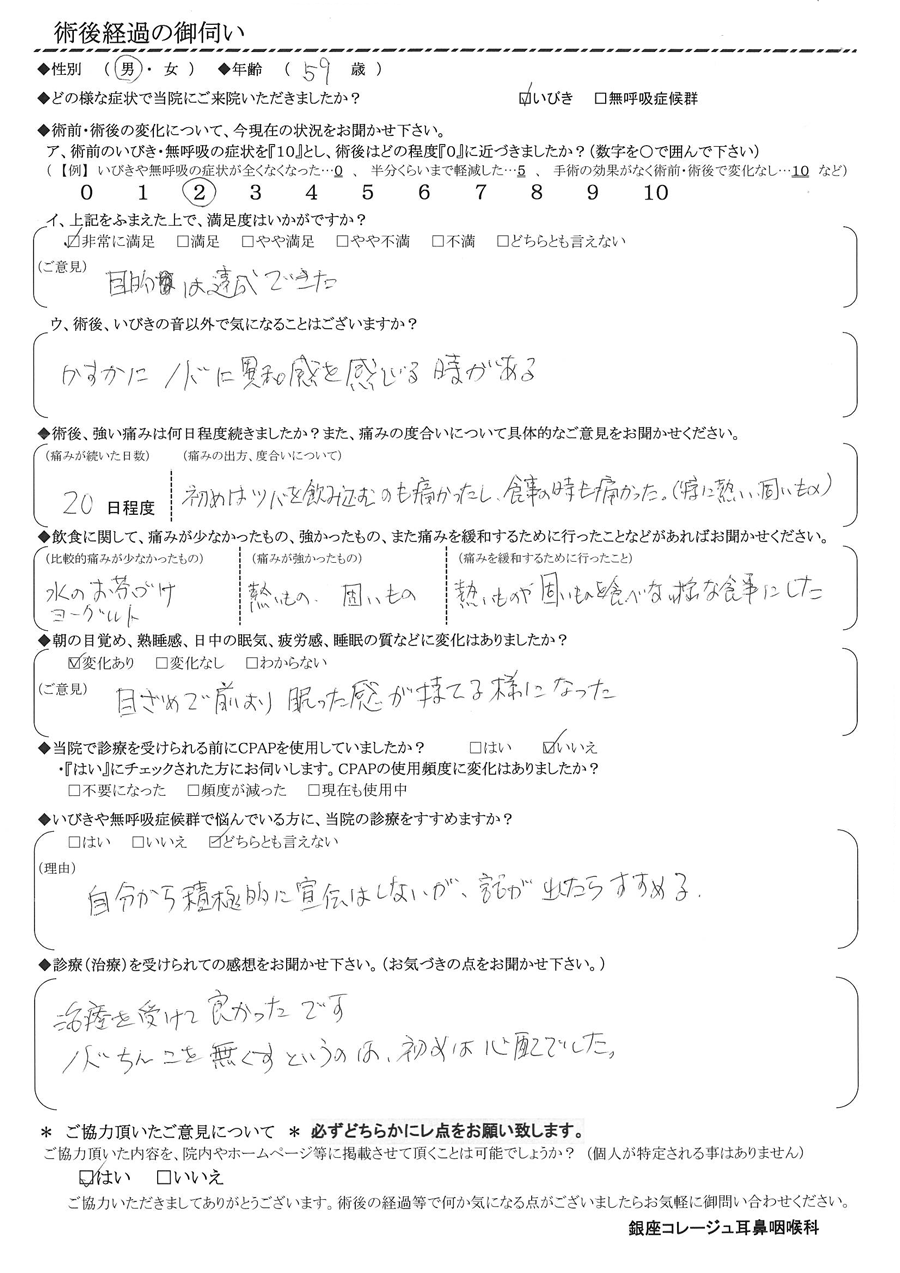 術後経過の御伺い
◆性別 (男・ 女 ) ◆年齢 ( 59 歳 )
◆どの様な症状で当院にご来院いただきましたか? ☑いびき □無呼吸症候群
◆術前・術後の変化について、今現在の状況をお聞かせ下さい。
ア、術前のいびき・無呼吸の症状を『10』とし、術後はどの程度『0』に近づきましたか?(数字を○で囲んで下さい)
(【例】 いびきや無呼吸の症状が全くなくなった…0 、 半分くらいまで軽減した…5 、 手術の効果がなく術前・術後で変化なし…10 など)
0 1 2 3 4 5 6 7 8 9 10
イ、上記をふまえた上で、満足度はいかがですか?
☑非常に満足 □満足 □やや満足 □やや不満 □不満 □どちらとも言えない
(ご意見)
目的は達成できた
ウ、術後、いびきの音以外で気になることはございますか?
かすかにノドに異和感を感じる時がある
◆術後、強い痛みは何日程度続きましたか?また、痛みの度合いについて具体的なご意見をお聞かせください。
(痛みが続いた日数) (痛みの出方、度合いについて)
20 日程度 初めはツバを飲み込むのも痛かったし、食事の時も痛かった。(特に熱い、固いもの)
◆飲食に関して、痛みが少なかったもの、強かったもの、また痛みを緩和するために行ったことなどがあればお聞かせください。
(比較的痛みが少なかったもの) (痛みが強かったもの) (痛みを緩和するために行ったこと)
水のお茶づけ 熱いもの. 固いもの 熱いものや固いものを食べない様な食事にした
ヨーグルト
◆朝の目覚め、熟睡感、日中の眠気、疲労感、睡眠の質などに変化はありましたか?
☑変化あり □変化なし □わからない
(ご意見)
目ざめで前より眠った感が持てる様になった
◆当院で診療を受けられる前にCPAPを使用していましたか? □はい ☑いいえ
・『はい』にチェックされた方にお伺いします。CPAPの使用頻度に変化はありましたか?
□不要になった □頻度が減った □現在も使用中
◆いびきや無呼吸症候群で悩んでいる方に、当院の診療をすすめますか?
□はい □いいえ ☑どちらとも言えない
(理由)
自分から積極的に宣伝はしないが、話が出たらすすめる.
◆診療(治療)を受けられての感想をお聞かせ下さい。(お気づきの点をお聞かせ下さい。)
治療を受けて良かったです
ノドちんこを無くすというのは、初めは心配でした。
＊ ご協力頂いたご意見について ＊ 必ずどちらかにレ点をお願い致します。
ご協力頂いた内容を、院内やホームページ等に掲載させて頂くことは可能でしょうか? (個人が特定される事はありません)
☑はい □いいえ
ご協力いただきましてありがとうございます。術後の経過等で何か気になる点がございましたらお気軽に御問い合わせください。
銀座コレージュ耳鼻咽喉科